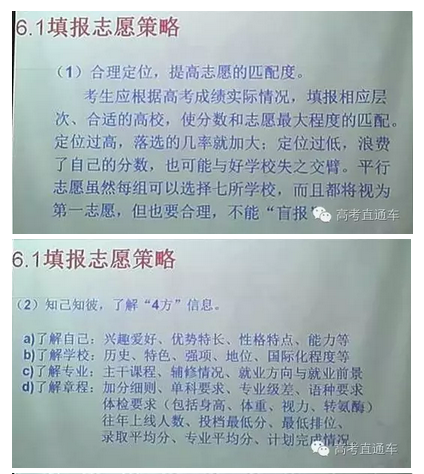 6.1填报志愿策略
（1）合理定位，提高志愿的匹配度。
考生应根据高考成绩实际情况，填报相应层
次、合适的高校，使分数和志愿最大程度的匹配。
定位过高，落选的几率就加大；定位过低，浪费
了自己的分数，也可能与好学校失之交臂。平行
志愿虽然每组可以选择七所学校，而且都将视为
第一志愿，但也要合理，不能“盲报
高考直通车
6.1填报志愿策略
（2）知己知彼，了解“4方”信息。
a)了解自己：兴趣爱好、优势特长、性格特点、能力等
b)了解学校：历史、特色、强项、地位、国际化程度等
c)了解专业：主干课程、辅修情况、就业方向与就业前景
d)了解章程：加分细则、单科要求、专业级差、语种要求
体检要求（包括身高、体重、视力、转氨酶）
往年上线人数、投档最低分、最低排位、
录取平均分、专业平均分、计划完成情况
高考直通车